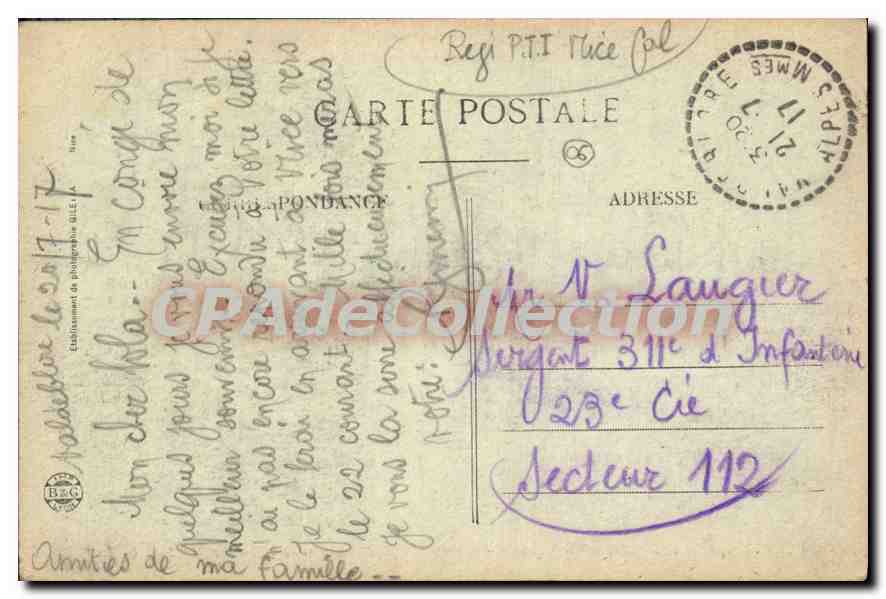 Regi P.T.T Nice
CARTE POSTALE
06
CORRESPONDANCE
ADRESSE
Valdeblore le 20/7-17
Mon cher -- En congé de
quelques jours je vous envoie mon
meilleur souvenir. Excusez moi si je
n'ai pas encore répondu à votre lettre.
Je le ferai en arrivant à Nice vers
le 22 courant. Mille fois
Je vous la serre affectueusement
votre:
Amitiés de ma famille --
Mr V. Laugier
Sergent 311e d'Infanterie
23e Cie
Secteur 112
3-20
21-7
17
ALPES Mmes
Etablissement de photographie GILETTA Nice
B&G
LYON
CPAdeCollection